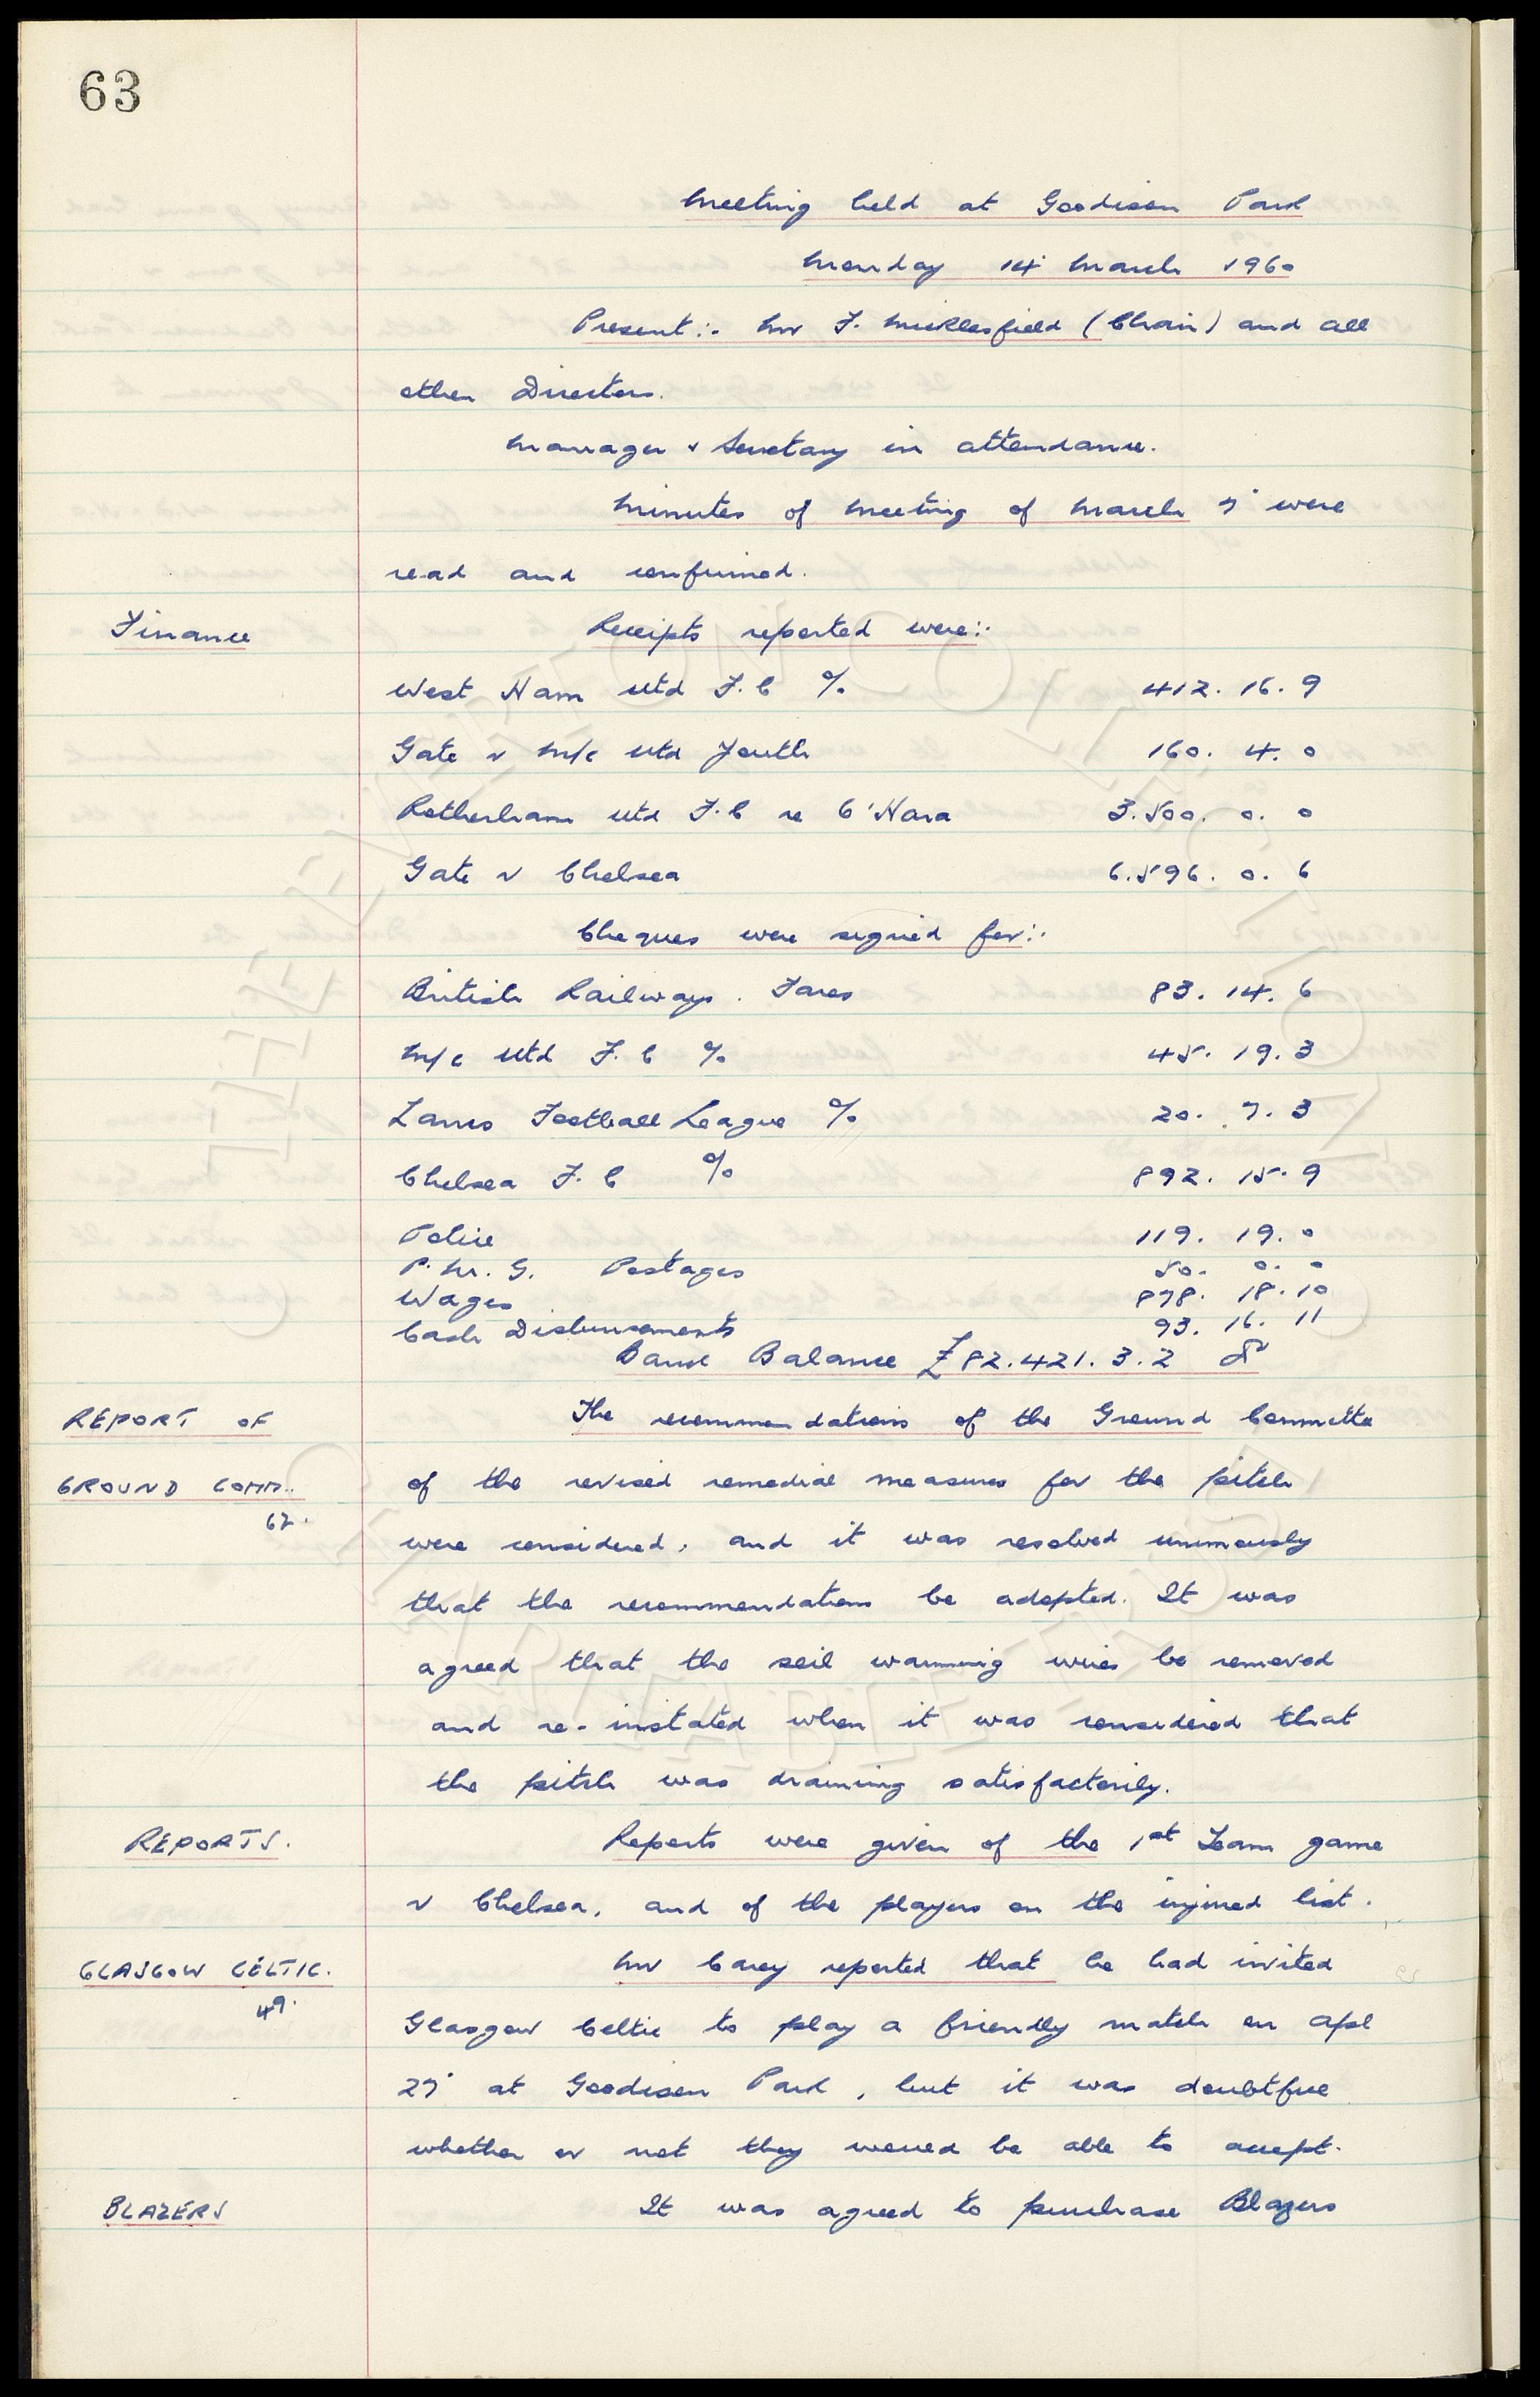 63
Meeting held at Goodison Park
Monday 14' March 1960
Present:- Mr F. Micklesfield (Chair) and all
other Directors.
Manager & Secretary in attendance.
Minutes of Meeting of March 7' were
read and confirmed.
Finance
Receipts reported were:-
West Ham Utd F.C %
412. 16. 9
Gate v M/c Utd Youth
160. 4. 0
Rotherham Utd F.C re O'Hara
3.500. 0. 0
Gate v Chelsea
6.596. 0. 6
Cheques were signed for:-
British Railways. Fares
83. 14. 6
M/c Utd F.C %
45. 19. 3
Lancs Football League %
20. 7. 3
Chelsea F.C %
892. 15. 9
Police
119. 19. 0
P.M.G. Postages
50. 0. 0
Wages
878. 18. 10
Cash Disbursements
93. 16. 11
Bank Balance £82.421. 3. 2
REPORT OF
GROUND COMM.
62.
The recommendations of the Ground Committe
of the revised remedial measures for the pitch
were considered, and it was resolved unimously
that the recommendations be adopted. It was
agreed that the soil warming wires be removed
and re-instated when it was considered that
the pitch was draining satisfactorily.
REPORTS.
Reports were given of the 1st Team game
v Chelsea, and of the players on the injured list.
GLASGOW CELTIC.
49.
Mr Carey reported that he had invited
Glasgow Celtic to play a friendly match on Apl
27' at Goodison Park, but it was doubtful
whether or not they would be able to accept.
BLAZERS
It was agreed to purchase Blazers